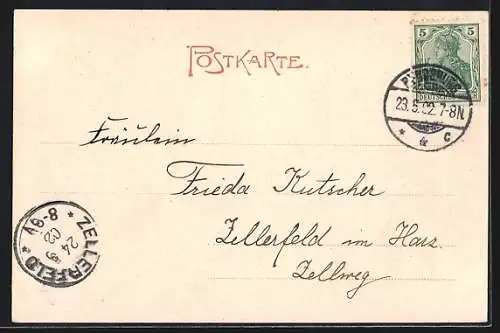 POSTKARTE.
5
23.6.02.7-8N.
* * C
Fräulein
Frieda Kutscher
Zellerfeld im Harz.
Zellweg
ZELLERFELD
24
02
8-9V